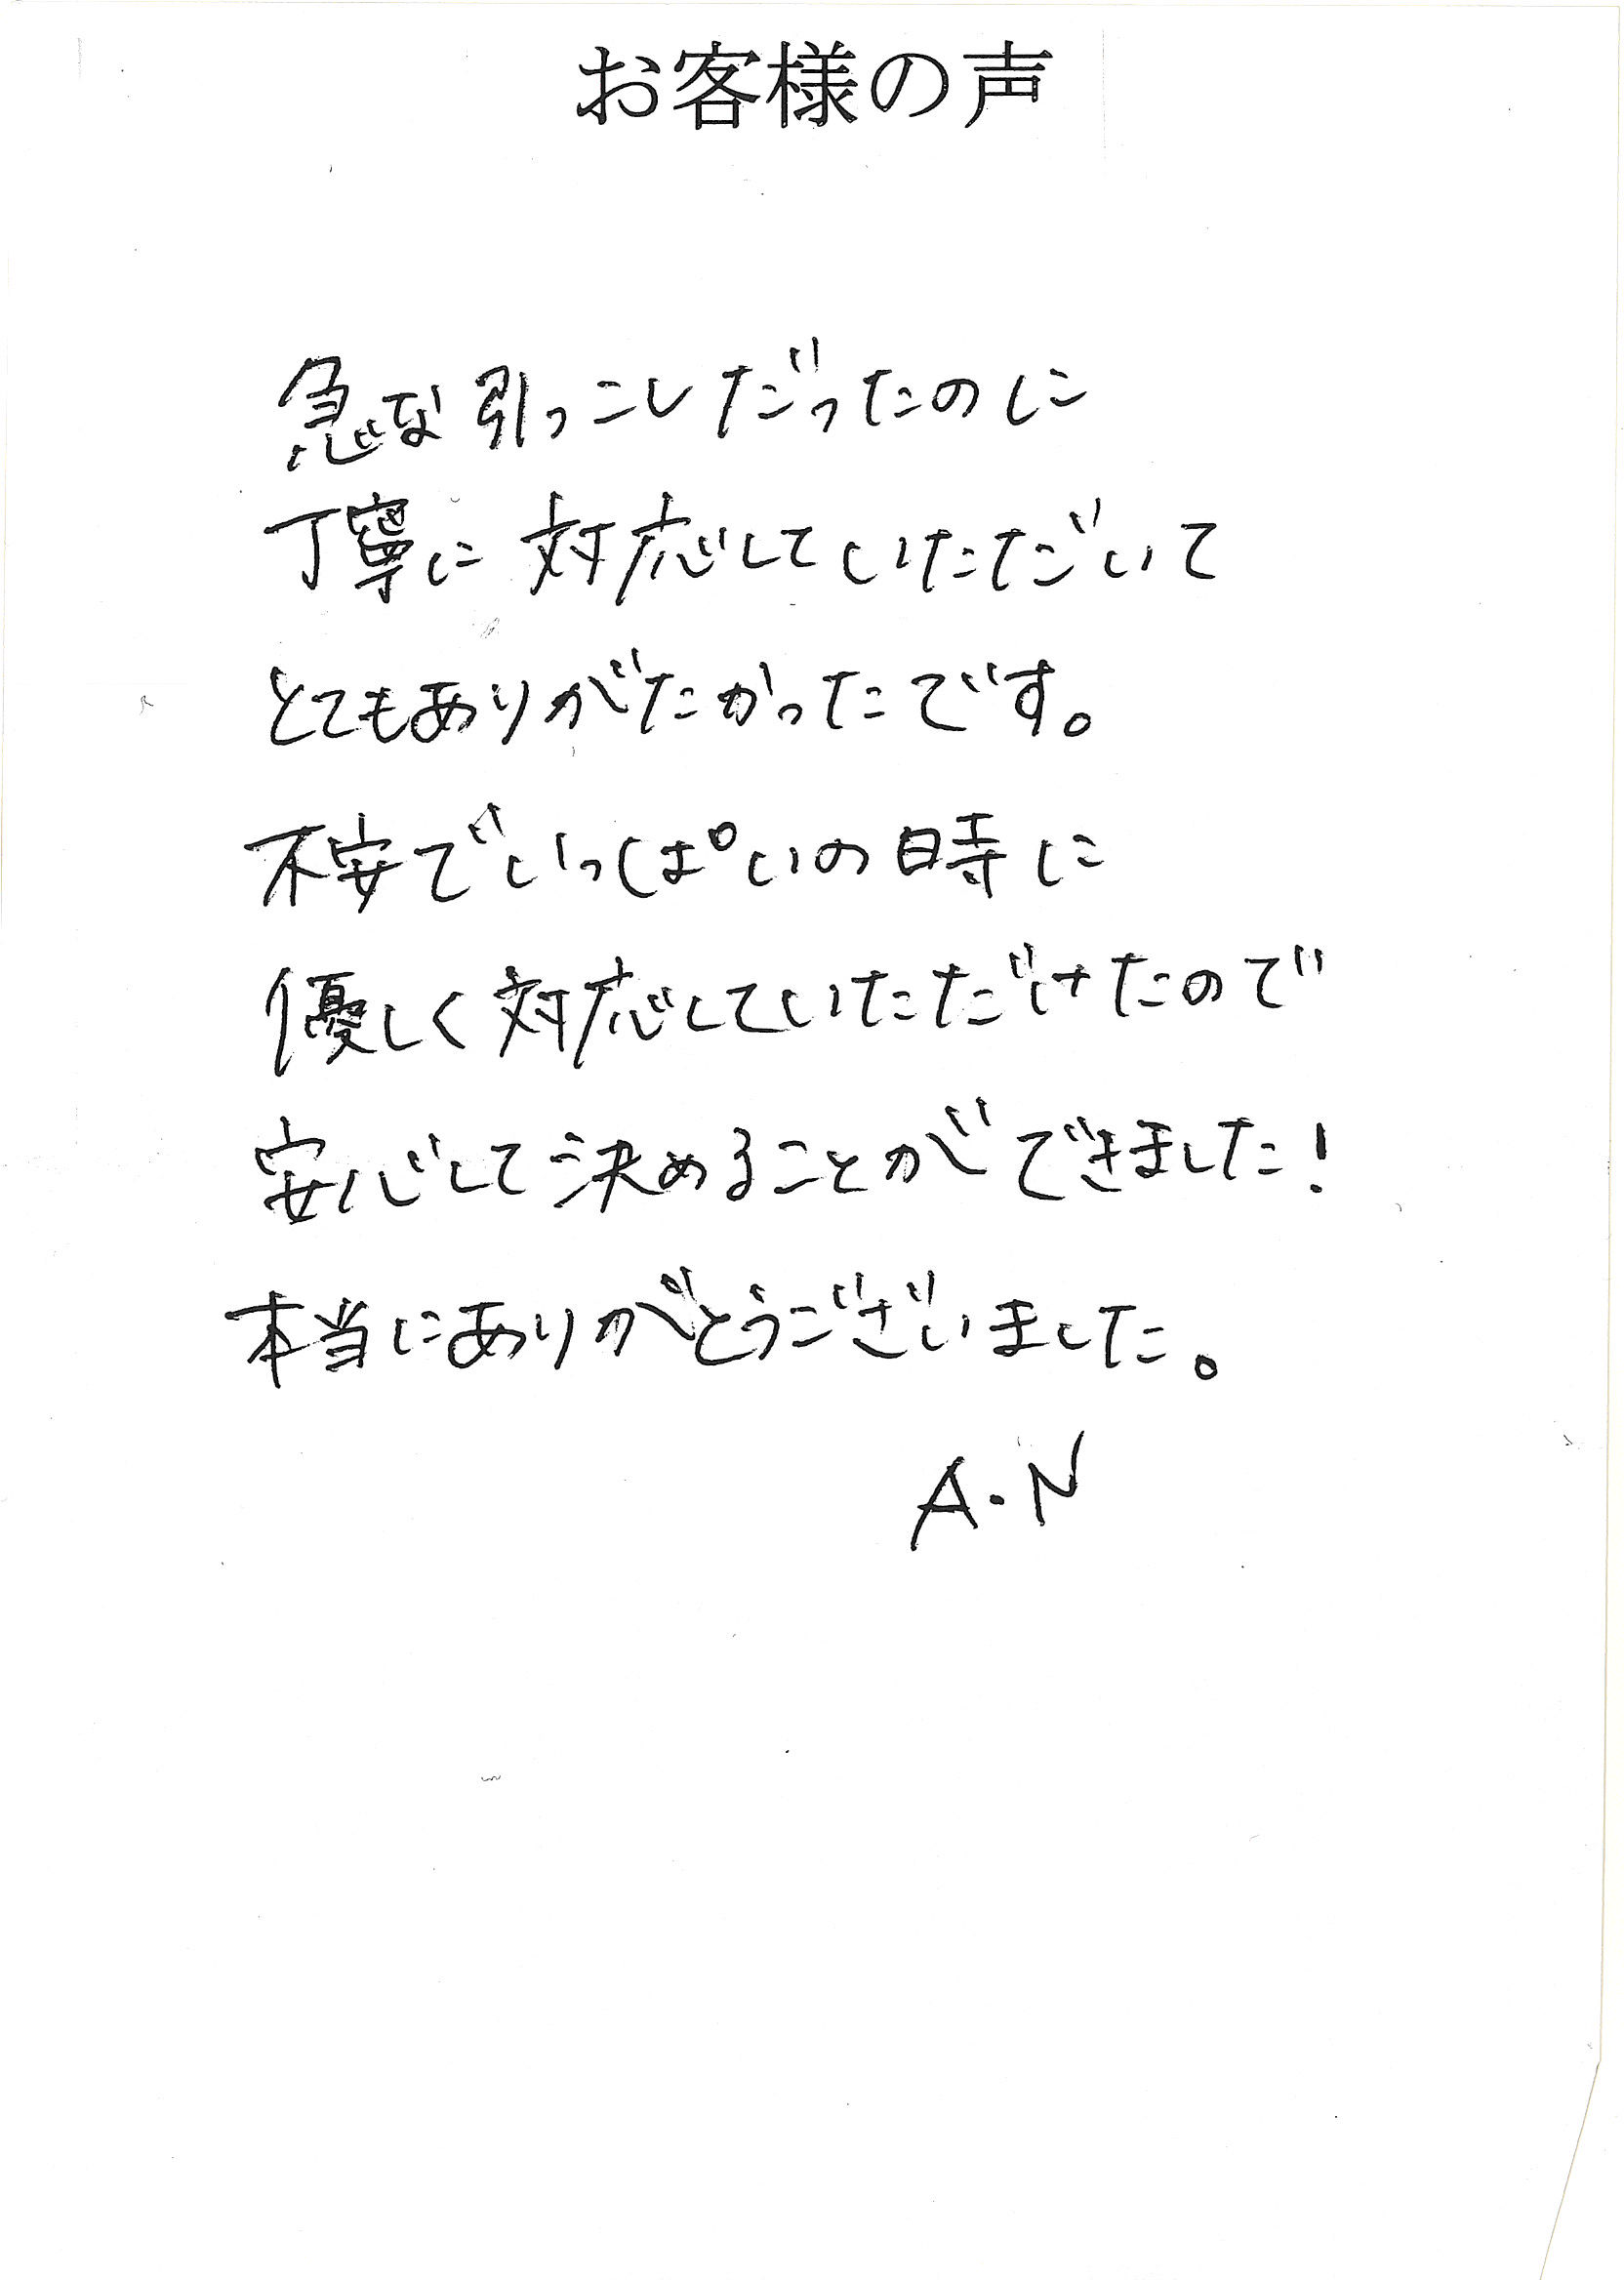 お客様の声
急な引っこしだったのに
丁寧に対応していただいて
とてもありがたかったです。
不安でいっぱいの時に
優しく対応していただけたので
安心して決めることができました!
本当にありがとうございました。
A.N